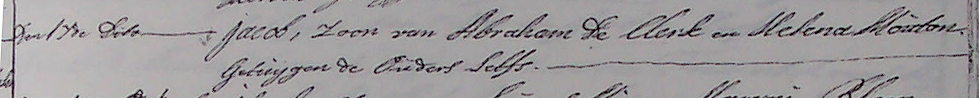 Den 17de dito — Jacob, Zoon van Abraham de Clerk en Helena Mouton.
Getuygen de Ouders Selfs.